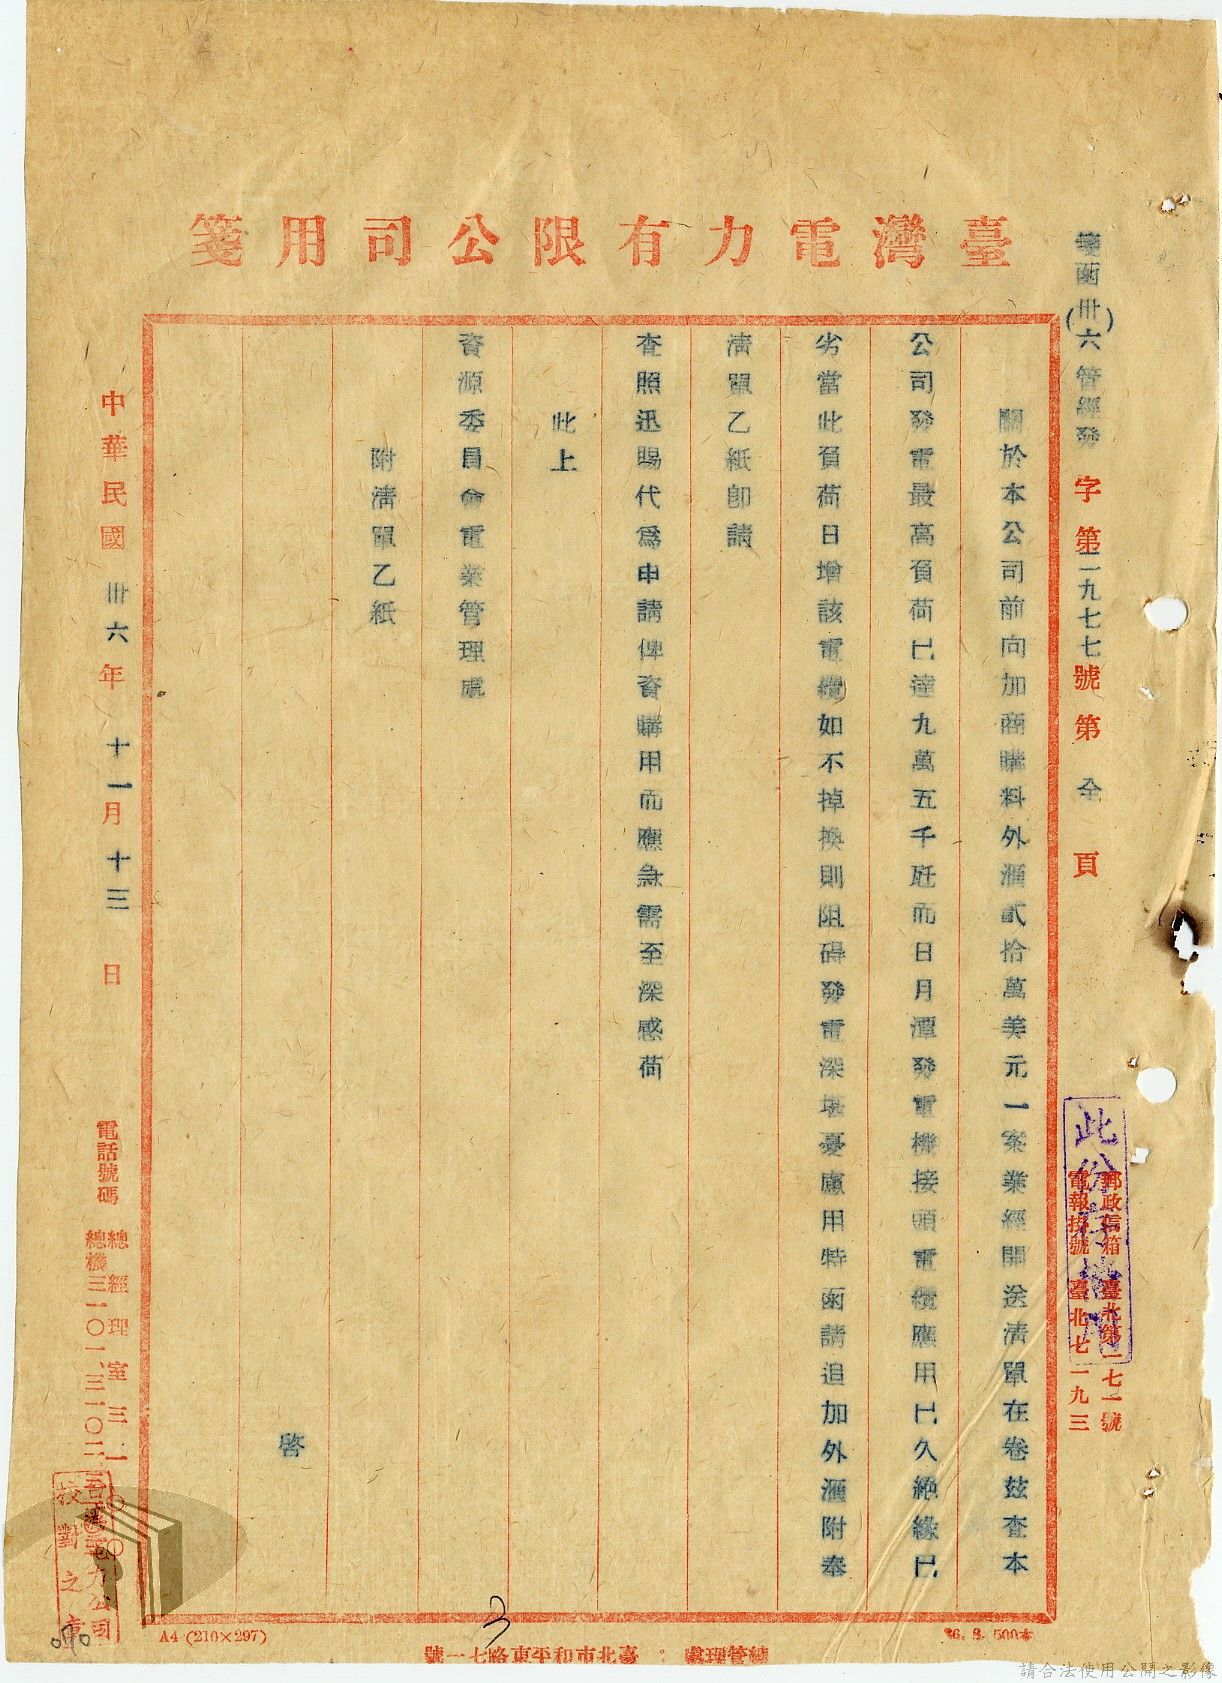 臺灣電力有限公司用箋
函(卅六)管經發字第二九七七號第全頁
關於本公司前向加商購料外滙貳拾萬美元一案業經開送清單在卷茲查本
公司發電最高負荷已達九萬五千瓩而日月潭發電機接頭電纜應用已久絶緣已
劣當此負荷日增該電纜如不掉換則阻碍發電深堪憂慮用特函請追加外滙附奉
清單乙紙卽請
查照迅賜代爲申請俾資購用而應急需至深感荷
此上
資源委員會電業管理處
附清單乙紙
啓
中華民國卅六年十一月十三日
郵政信箱臺北第一七一號
電報掛號臺北七一九三
此份存
電話號碼
總經理室三一〇〇
總機三一〇一、三一〇二
臺灣電力公司
校對之章
A4 (210×297)
36. 8. 500本
總管理處：臺北市和平東路七一號
3
請合法使用公開之影像